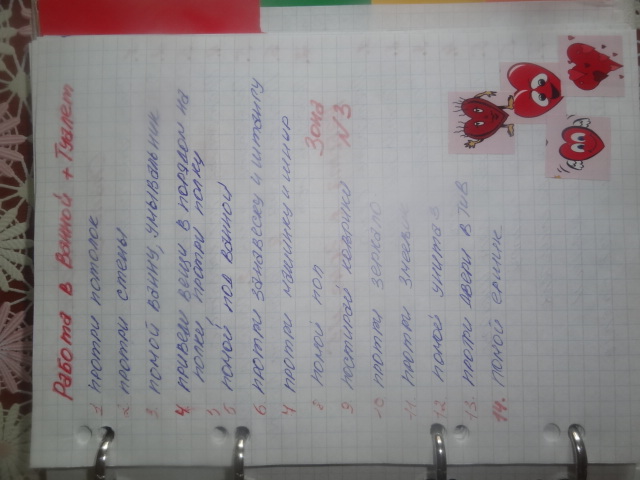 Работа в Ванной + Туалет
1 протри потолок
2. протри стены
3. помой ванну, умывальник
4. приведи вещи в порядок на
полке, протри полку
5. помой под ванной
6. протри занавеску и штангу
7 протри машинку и шнур
8 помой пол
Зона
N3
9. постирай коврики
10 протри зеркало
11. протри
12 помой унитаз
13. протри двери в т и в
14. помой ёршик